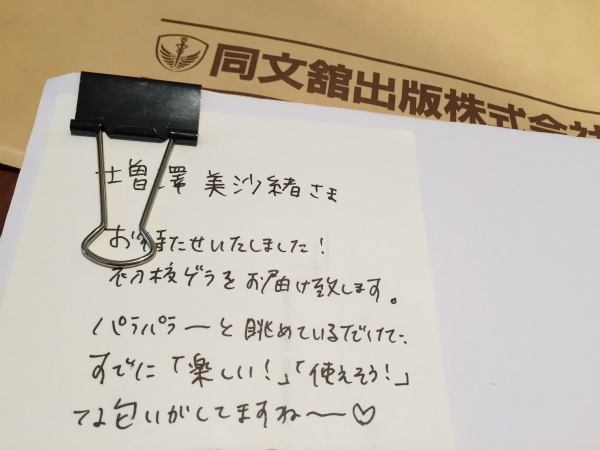 同文舘出版株式会社
増澤 美沙緒さま
お待たせいたしました！
初校ゲラをお届け致します。
パラパラーと眺めているだけで、
すでに「楽しい！」「使えそう！」
な匂いがしてますね〜♡